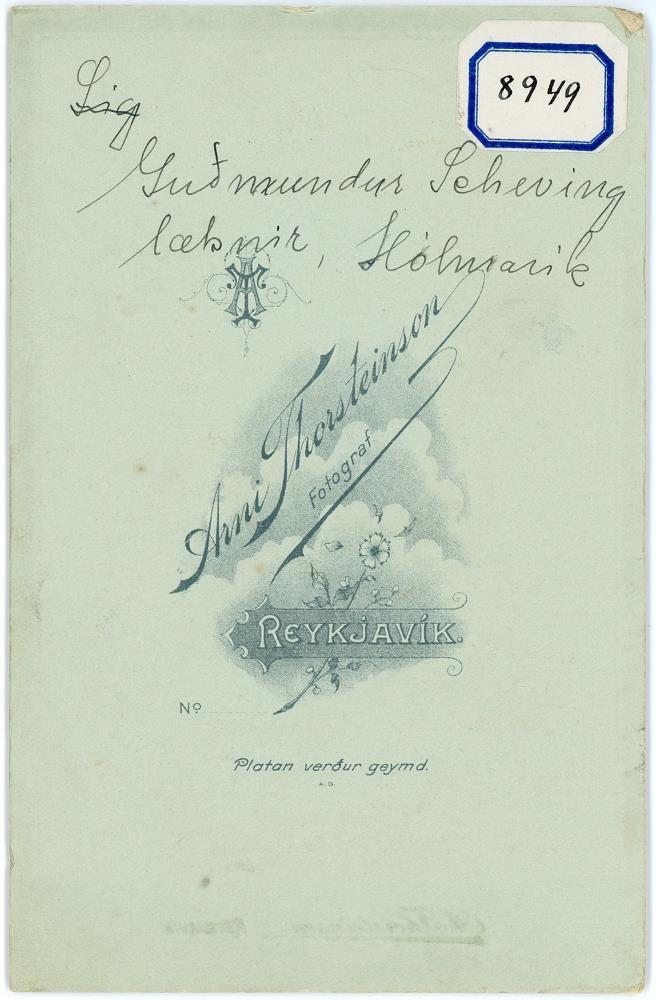 8949
Sig
Guðmundur Scheving
læknir, Hólmavík
Á T
Arni Thorsteinson
Fotograf
REYKJAVÍK.
No
Platan verður geymd.
A.G.